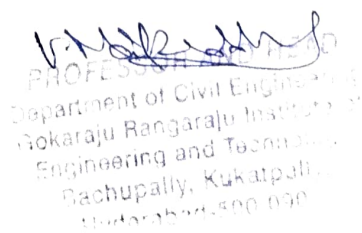 PROFESSOR AND HEAD
Department of Civil Engineering
Gokaraju Rangaraju Institute of
Engineering and Technology
Bachupally, Kukatpally
Hyderabad-500 090